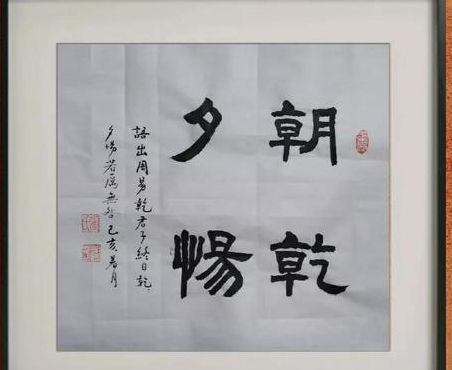 朝乾
夕愓
語出周易乾君子終日乾〻
夕惕若厲無咎己亥月